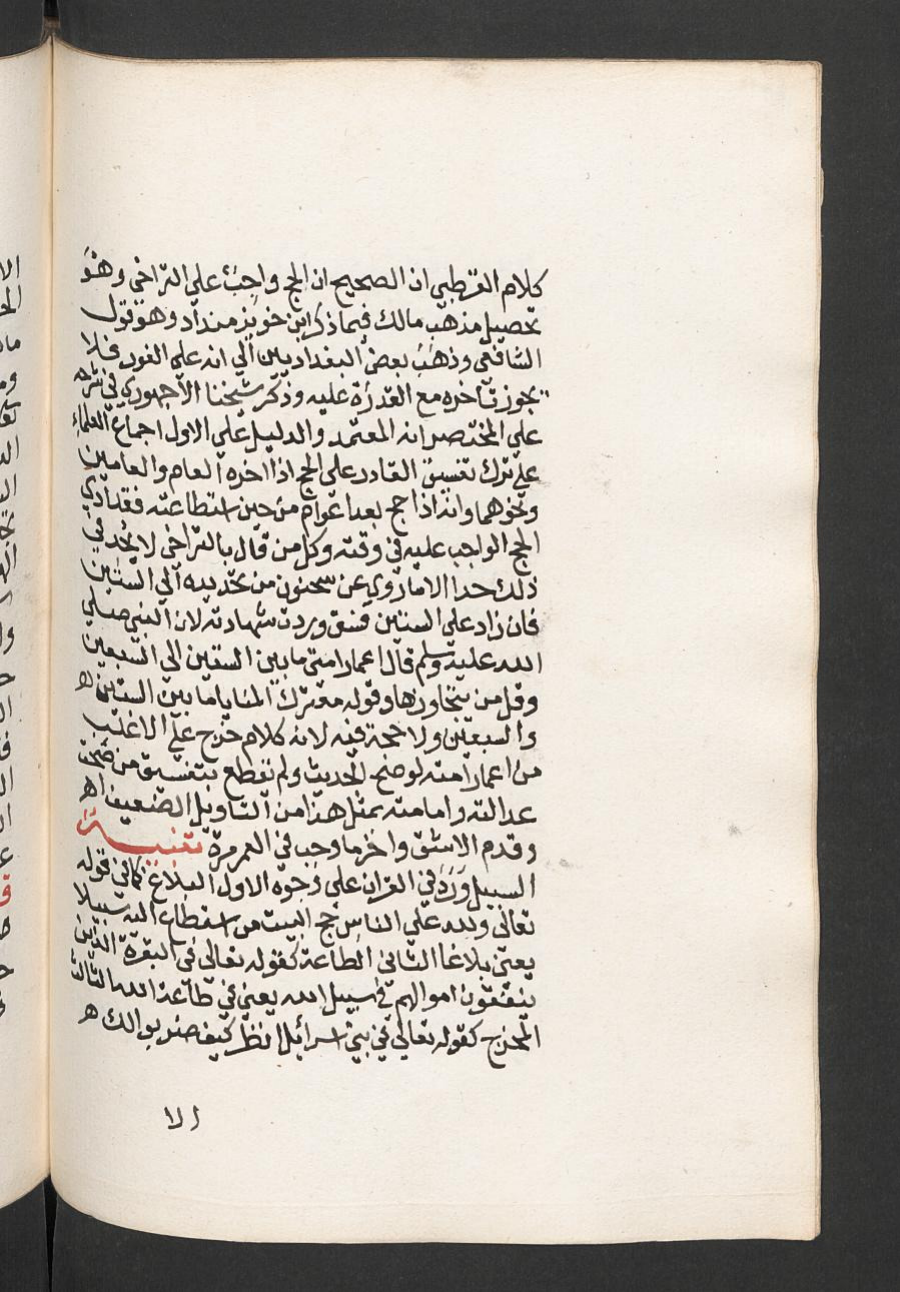 كلام القرطبي ان الصحيح ان الحج واجب علي التراخي وهو
تحصيل مذهب مالك فيما ذكر ابن خويز منداد وهو قول
الشافعي وذهب بعض البغداديين الي انه علي الفور فلا
يجوز تآخره مع القدرة عليه وذكر شيخنا الاجهوري في شرحه
علي المختصر انه المعتمد والدليل علي الاول اجماع العلماء
علي ترك تفسيق القادر علي الحج اذا اخره العام والعامين
ونحوهما وانه اذا حج بعد اعوام من حين استطاعته فقد ادي
الحج الواجب عليه في وقته وكل من قال بالتراخي لا يحد في
ذلك حدا الا ما روي عن سحنون من تحديده الي الستين
فان زاد علي الستين فسق وردت شهادته لان النبي صلي
الله عليه وسلم قال اعمار امتي ما بين الستين الي السبعين
وقل من يتجاوزها وقوله معترك المنايا ما بين الستين ه
والسبعين ولا حجة فيه لانه كلام خرج علي الاغلب
من اعمار امته لو صح الحديث ولم نقطع بتفسيق من صحت
عدالته وامامته بمثل هذا من التاويل الضعيف اه
وقدم الاشق واخر ما وجب في العمر مرة تنبيه
السبيل ورد في القران علي وجوه الاول البلاغ كما في قوله
تعالي ولله علي الناس حج البيت من استطاع اليه سبيلا
يعني بلاغا الثاني الطاعة كقوله تعالي في البقرة الذين
ينفقون اموالهم في سبيل الله يعني في طاعة الله الثالث
المخرج كقوله تعالي في بني اسرائل انظر كيف ضربوا لك ه
الا